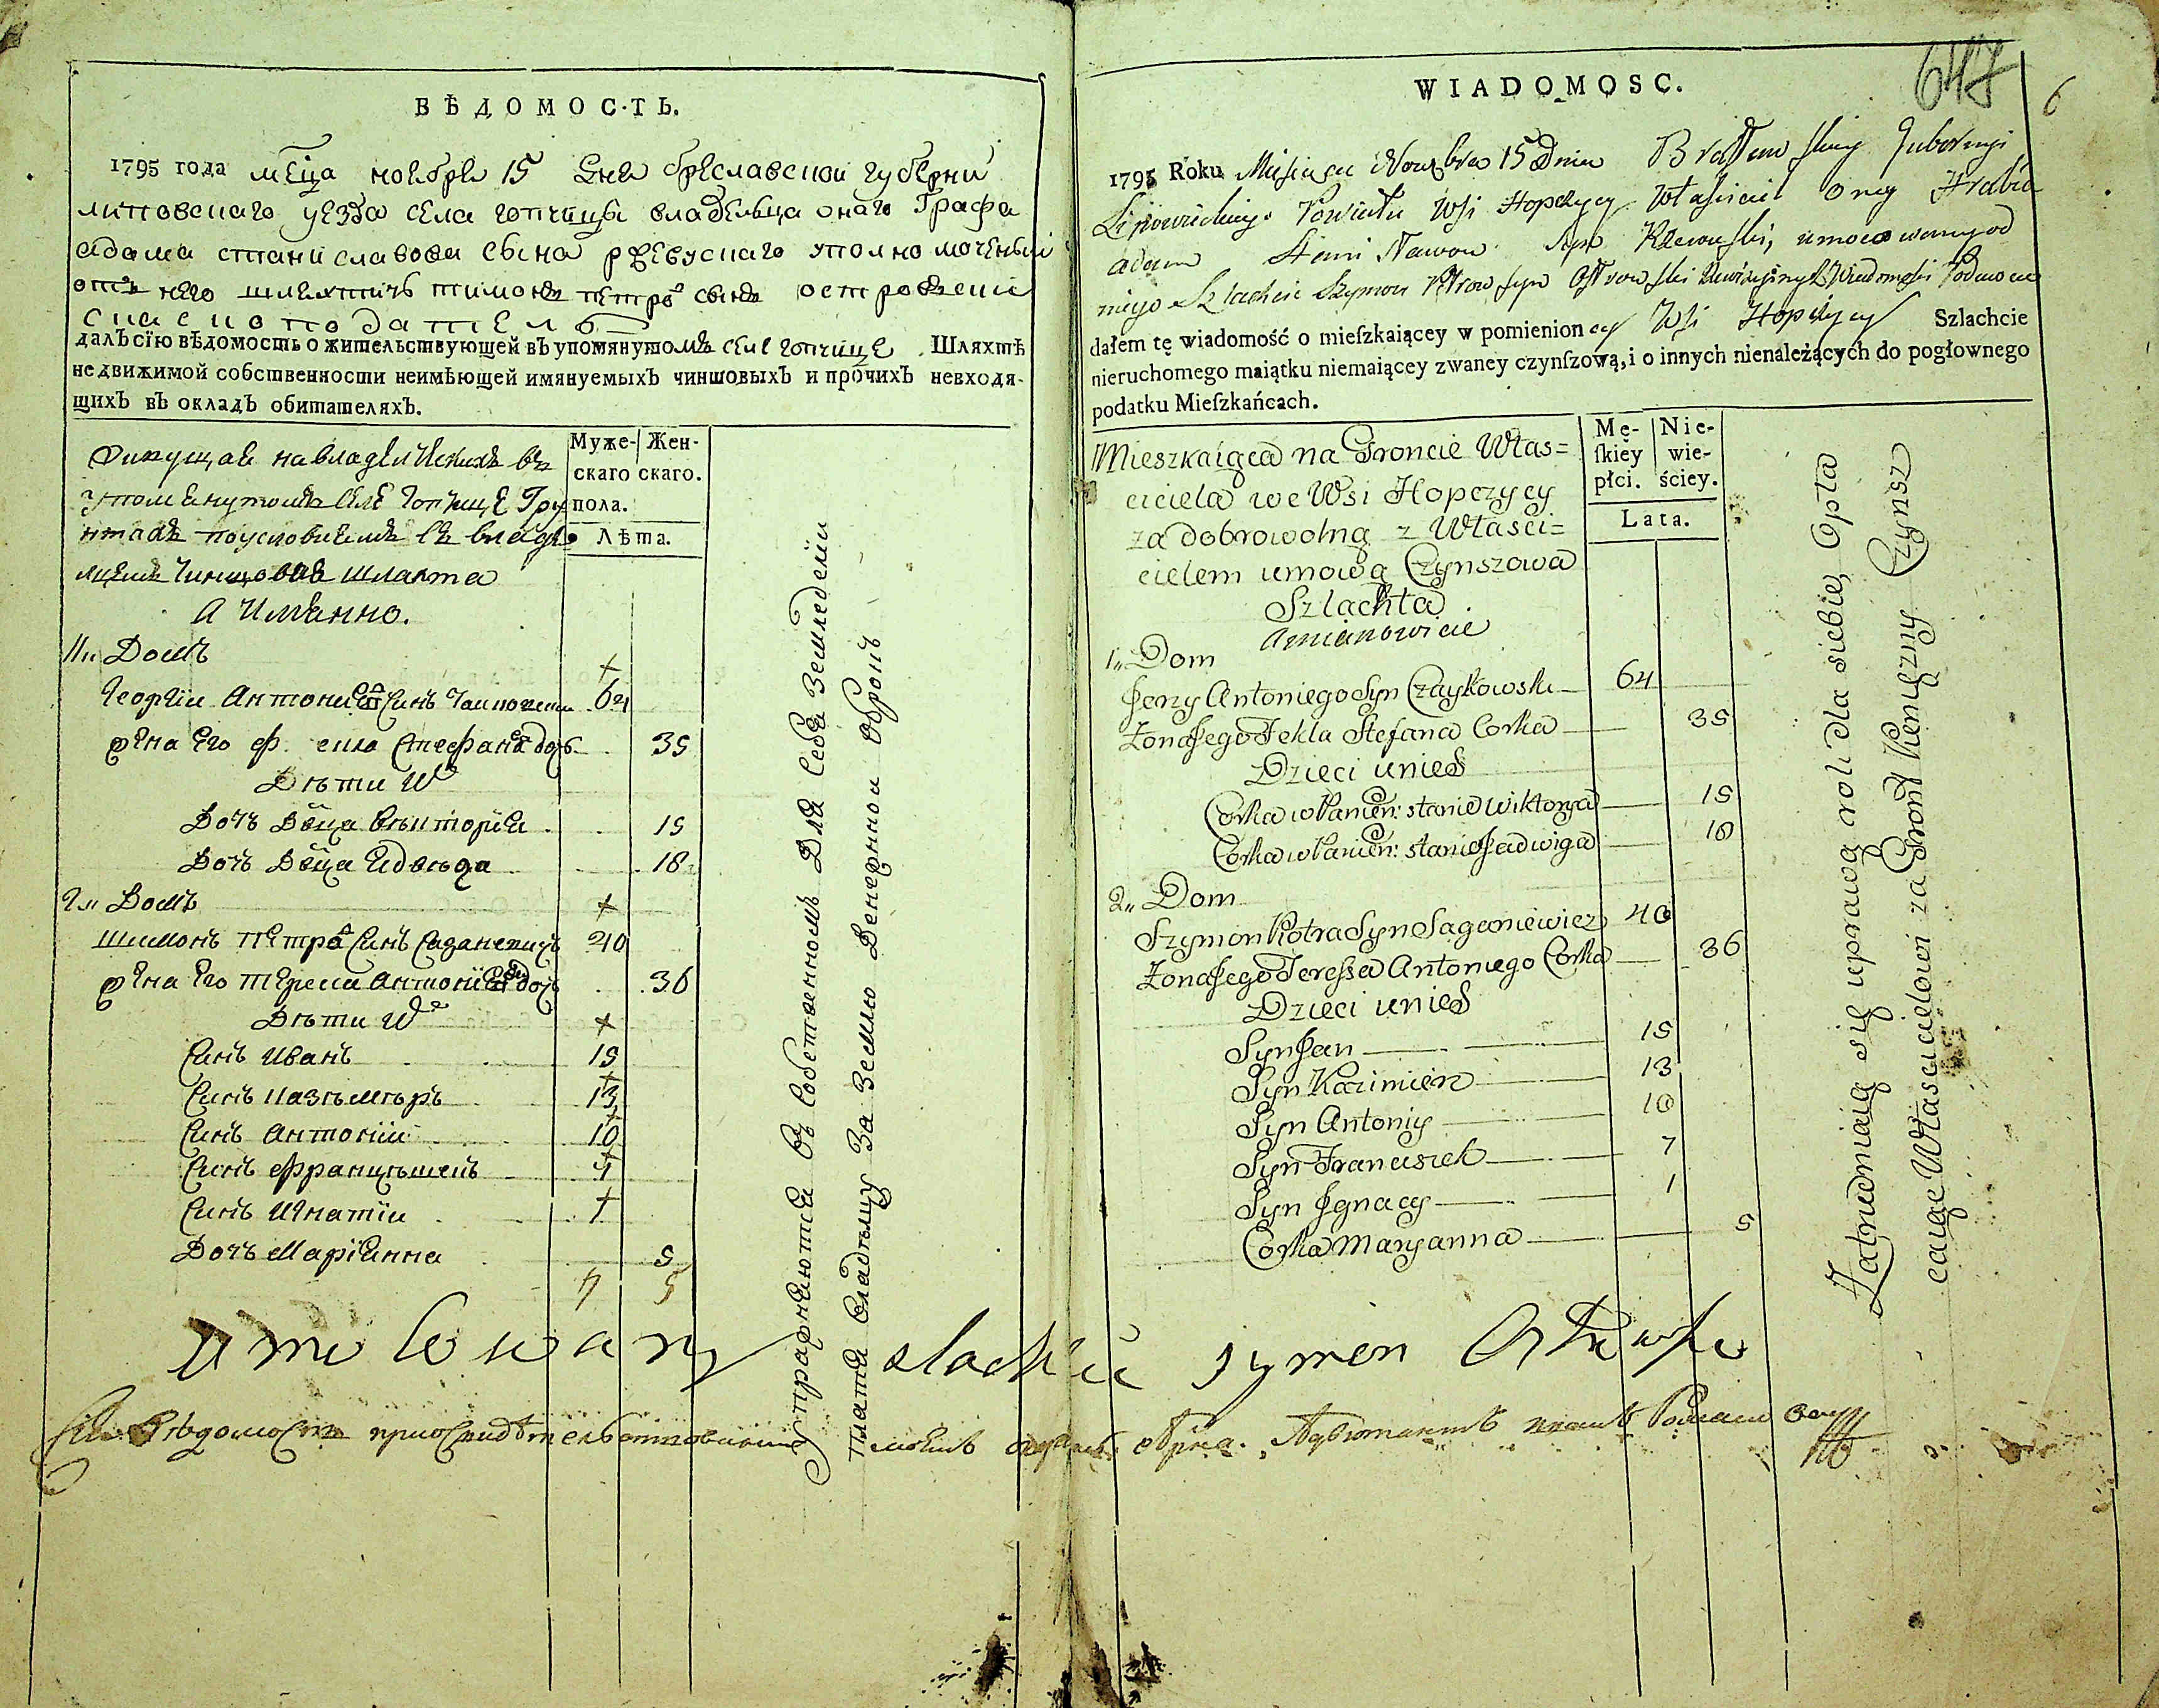 ВѢДОМОСТЬ.
1795 года мсца ноебря 15 дня бреславской губерни
липовецкаго уезда села гопчицы владельца онаго Графа
адама станиславова сына ржевускаго уполномоченый
отъ него шляхтичъ шимонъ петровъ сынъ островскій
даль сїю вѣдомость о жительствующей въ упомянутомъ селе гопчице Шляхтѣ
недвижимой собственности неимѣющей имянуемыхъ чиншовыхъ и прочихъ невходя-
щихъ въ окладъ обитателяхъ.
Живущая на владелческихъ въ
упомянутомъ селе Гопчице Гру
нтахъ по условиямъ съ владе
лцемъ Чиншовая шляхта
а имянно.
Муже- Жен-
скаго скаго.
пола.
Лѣта.
1" Домъ
Георгiи Антониевъ Синъ Чаиковски 64
жена его Стефанова дочь 35
Дѣти их
Дочь Вѣктория 15
Дочь Ядвѣга 18
2" Домъ
Шимонъ Петровъ Синъ Саганевичъ 40
жена Его Тереса Антониева дочь 36
Дѣти их
Синъ Иванъ 15
Синъ Казѣмѣръ 13
Синъ Антонiи 10
Синъ Францѣшекъ 7
Синъ Игнатiи 1
Дочь Марiянна 5
7 5
Упражняются въ собственномъ Для себя Земледелiи
Платя Владѣлцу За Землю Денежнои Оброкъ
WIADOMOSC.
1795 Roku Miesiąca Nowębra 15 Dnia Bracławskiey Gubernyi
Lipowieckiego Powiatu Wsi Hopczycy Właściciel oney Hrabia
Adam Stanisławow syn Rzewuski, umocowany od
niego Szlachcic Szymon Piotrow syn Ostrowski
dałem tę wiadomość o mieſzkaiącey w pomienioney Wsi Hopczycy Szlachcie
nieruchomego maiątku niemaiącey zwaney czynſzową, i o innych nienależących do pogłownego
podatku Mieſzkańcach.
Mieszkaiąca na Groncie Włas=
ciciela we Wsi Hopczycy
za dobrowolną z Własci=
cielem umową Czynszowa
Szlachta
amianowicie
Mę- Nie-
ſkiey wie-
płci. ściey.
Lata.
1" Dom
Jerzy Antoniego Syn Czaykowski 64
Zona Jego Tekla Stefana Corka 35
Dzieci unich
Corka w Panień: stanie Wiktorya 15
Corka w Panień: stanie Jadwiga 10
2" Dom
Szymon Piotra Syn Saganiewicz 40
Zona Jego Teressa Antoniego Corka 36
Dzieci unich
Syn Jan 15
Syn Kazimierz 13
Syn Antoniy 10
Syn Franciszek 7
Syn Jgnacy 1
Corka Maryanna 5
Zatrudniaią się uprawą roli dla siebie, Opła
caiąc Włascicielowi za Gront Pieniężny Czynsz
647
6
umocowany slachcic symon Ostrowski